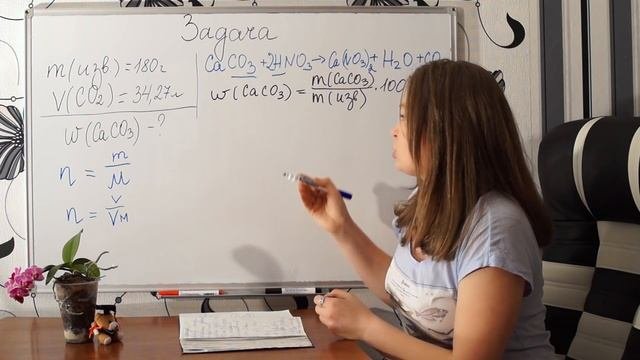 Задача
m(изв.) = 180г
V(CO₂) = 34,27л
w(CaCO₃) - ?
n = m/M
n = v/Vм
CaCO₃ + 2HNO₃ → Ca(NO₃)₂ + H₂O + CO
w(CaCO₃) = m(CaCO₃)/m(изв) · 100